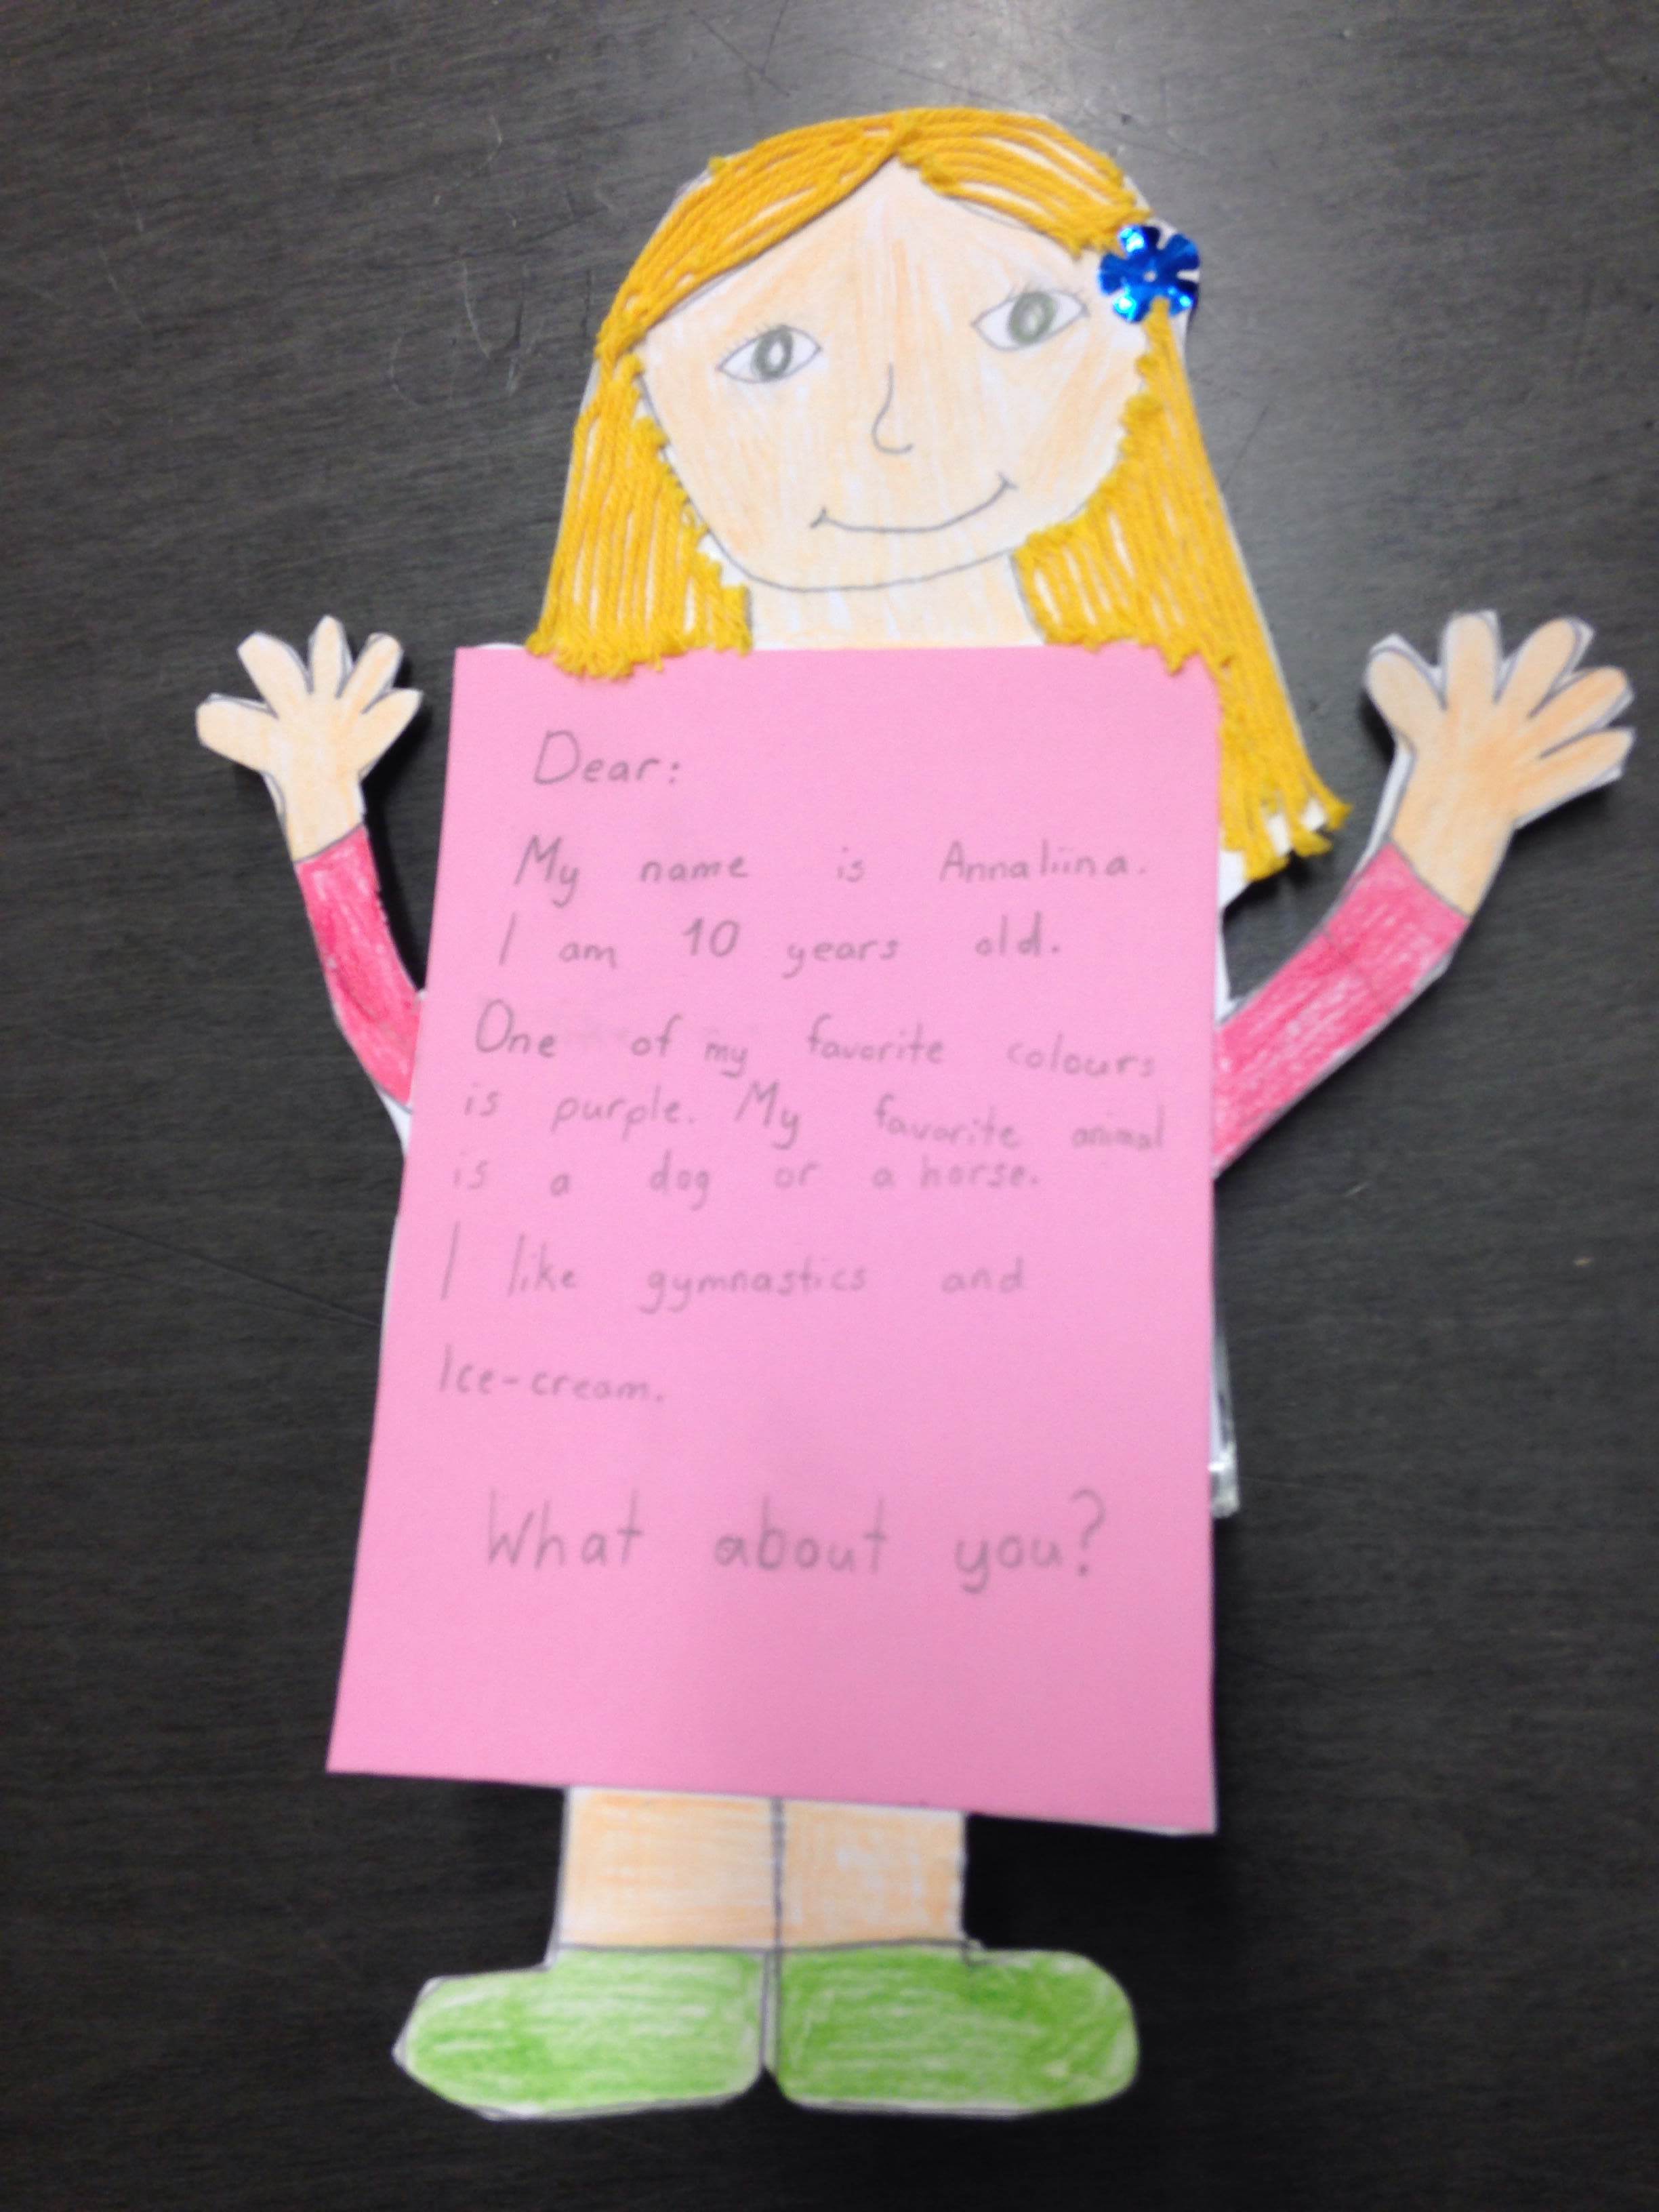 Dear:
My name is Annaliina.
I am 10 years old.
One of my favorite colours
is purple. My favorite animal
is a dog or a horse.
I like gymnastics and
Ice-cream.
What about you?